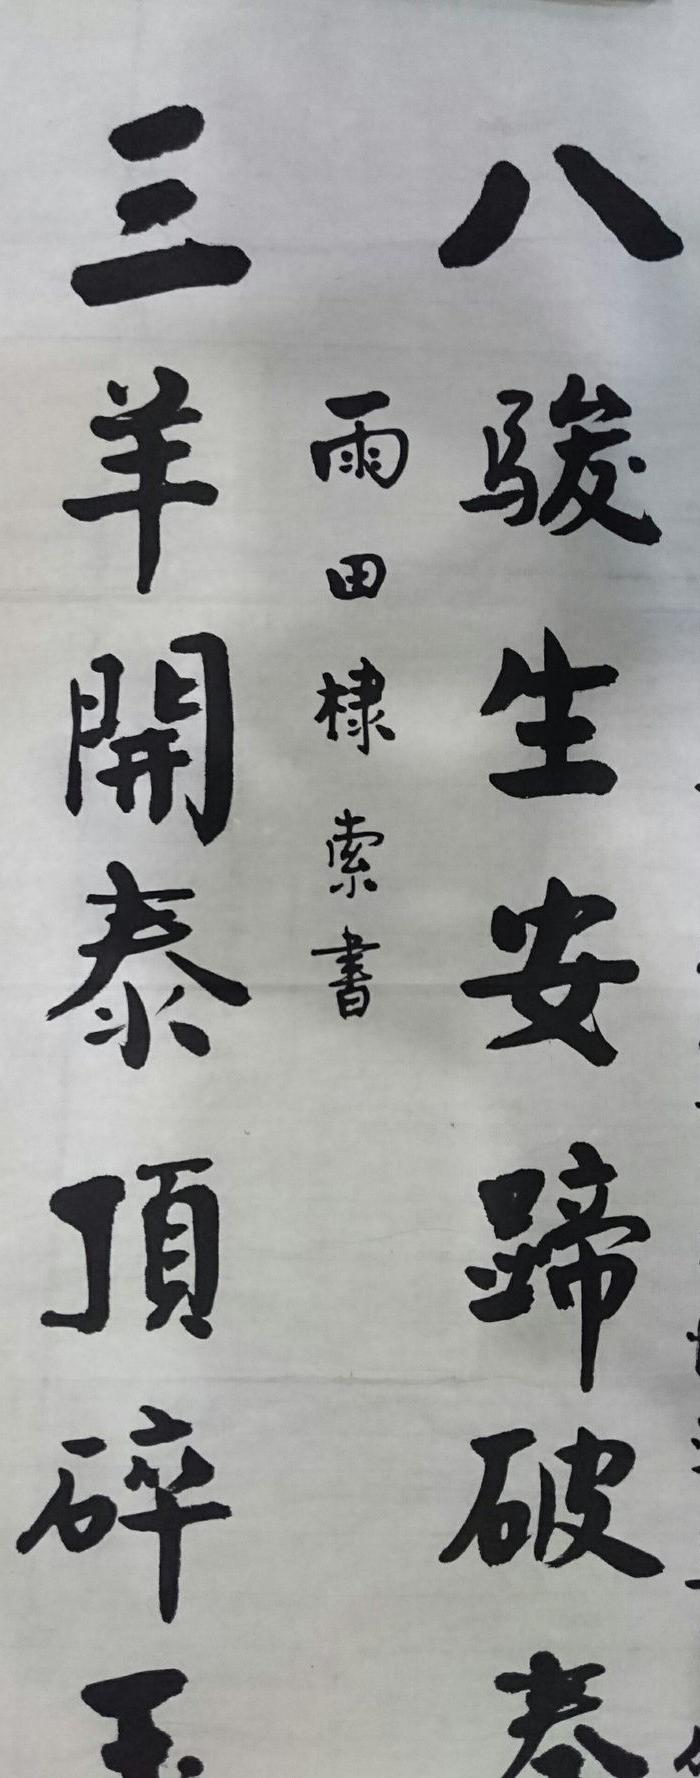 八駿生安蹄破
雨田棣索書
三羊開泰頂碎玉